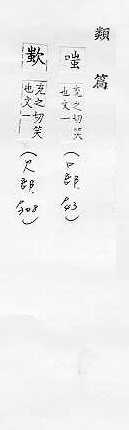 類篇
嗤 充之切笑也文一 (口部 p.43)
歖 充之切笑也文一 (欠部 p.308)